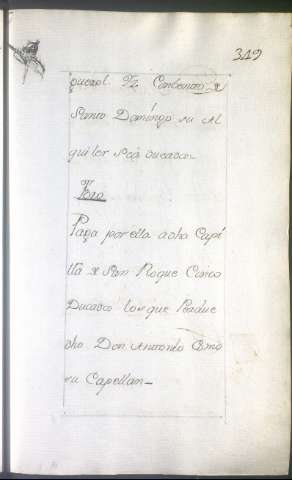 319
Conbento de
Santo Domingo su Al
quiler seis ducados
Foro
Paga por ella a dha Capi
lla de San Roque Cinco
Ducados los que Perdue
dho Don Antonio Como
su Capellan